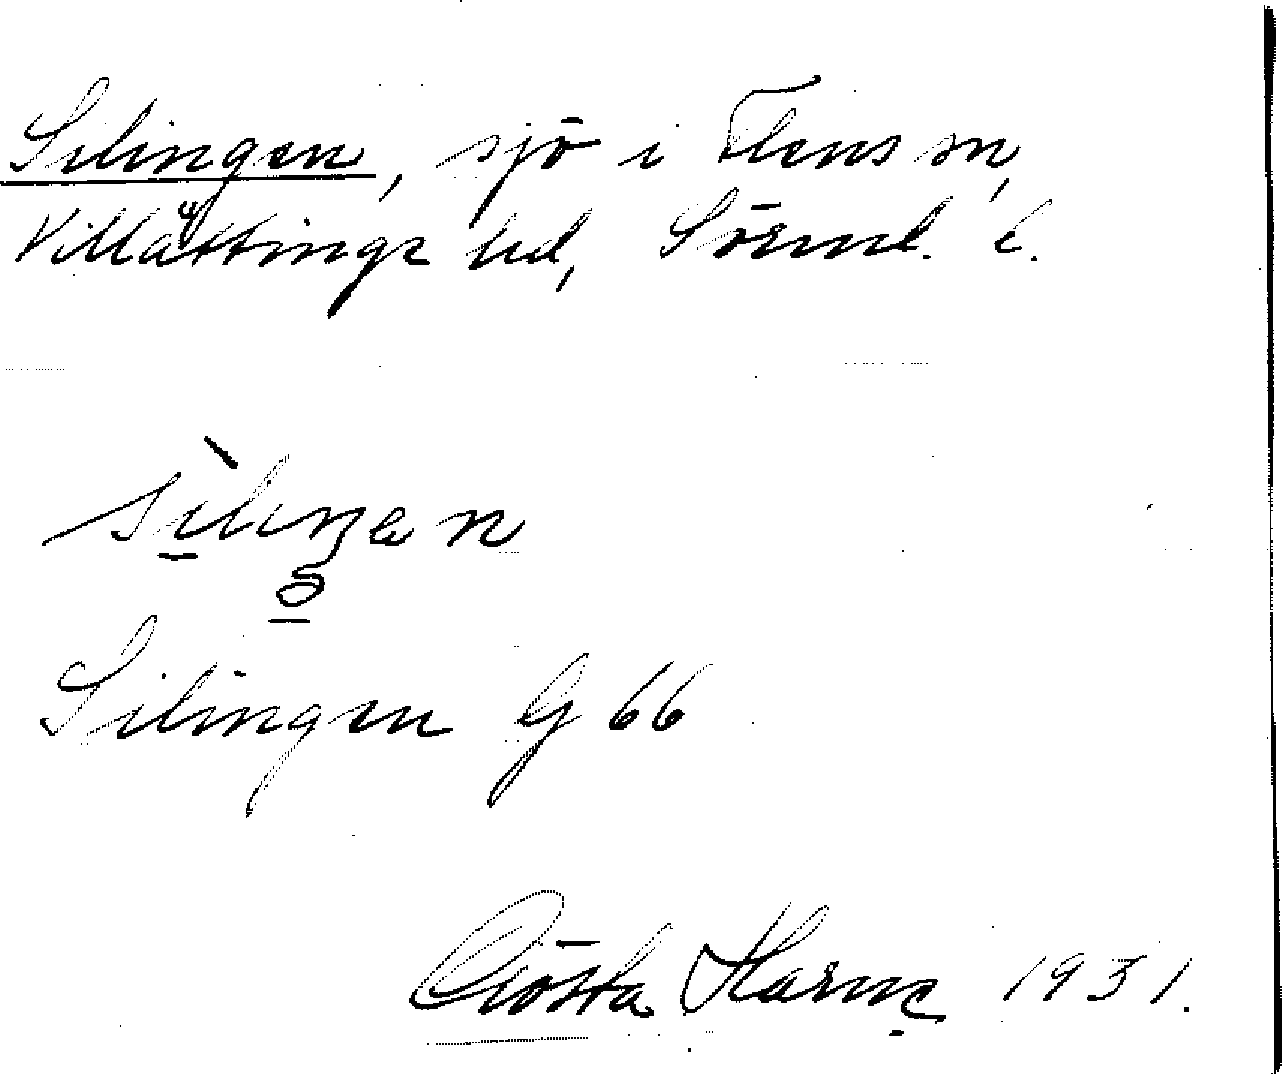 Silingen, sjö i Flens sn,
Villåttinge hd, Sörml. l.
Silingen G 66
Gösta Harne 1931.